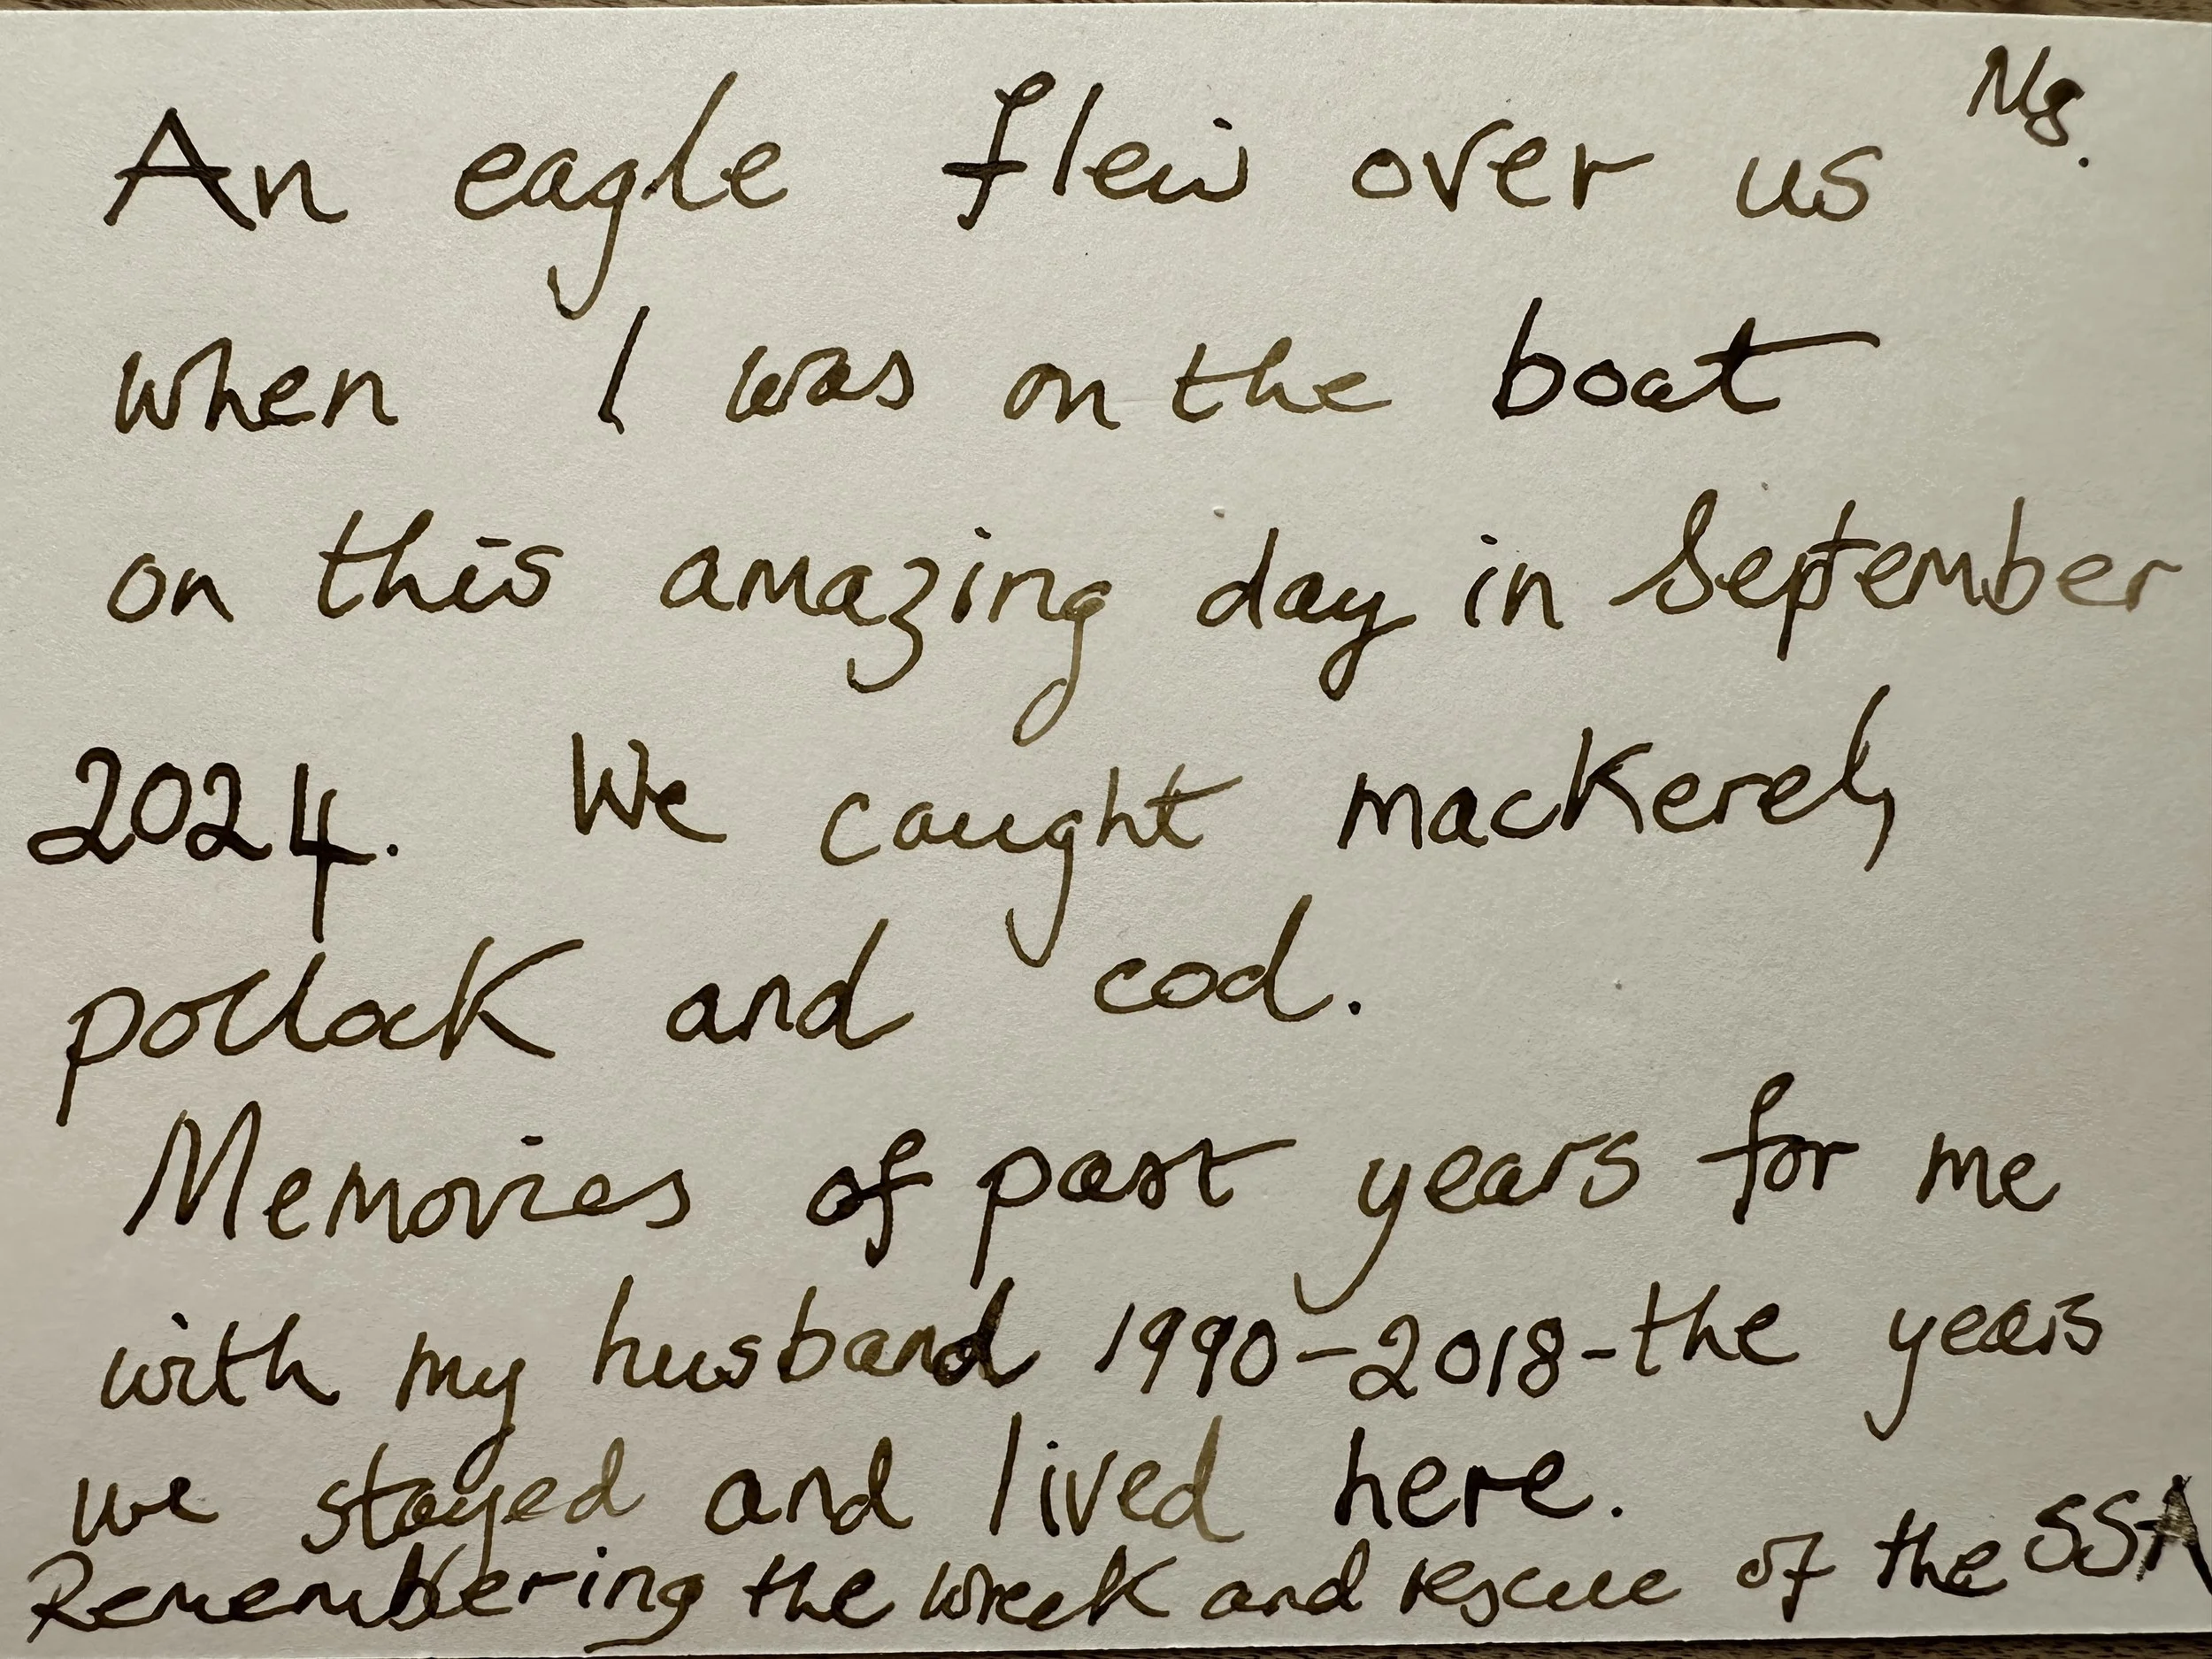 An eagle flew over us
when I was on the boat
on this amazing day in September
2024. We caught mackerel,
pollock and cod.
Memories of past years for me
with my husband 1990-2018-the years
we stayed and lived here.
Remembering the wreck and rescue of the SSA